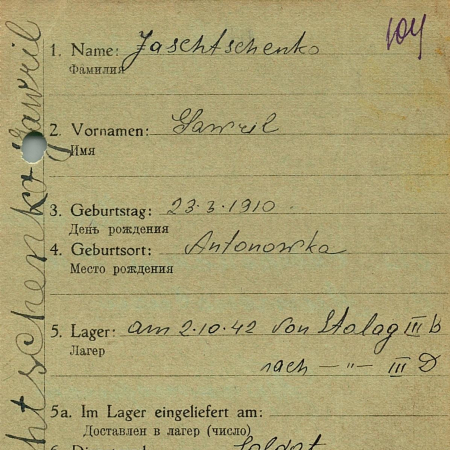 104
1. Name: Jaschtschenko
Фамилия
2. Vornamen: Gawril
Имя
3. Geburtstag: 23.3.1910.
День рождения
4. Geburtsort: Antonowka
Место рождения
5. Lager: am 2.10.42 von Stalag III b
Лагер
nach —"— III D
5a. Im Lager eingeliefert am:
Доставлен в лагер (число)
Soldat
htschenko Gawril